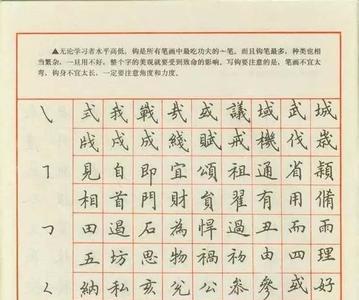 ▲无论学习者水平高低，钩是所有笔画中最吃功夫的一笔。而且钩笔最多，种类也相
当繁杂，一旦用不好，整个字的美观就要受到致命的影响。写钩要注意的是，笔画不宜太
弯，钩身不宜太长，一定要注意角度和力度。
式我戰哉或議域武城
戌成綫賦戒機伐歲
見自即宜頌祖通省穎
相首門財貟翟有用備
田過石為悍過丑而雨
五坊思物禍初由四理
納私亥兊公叅參或好